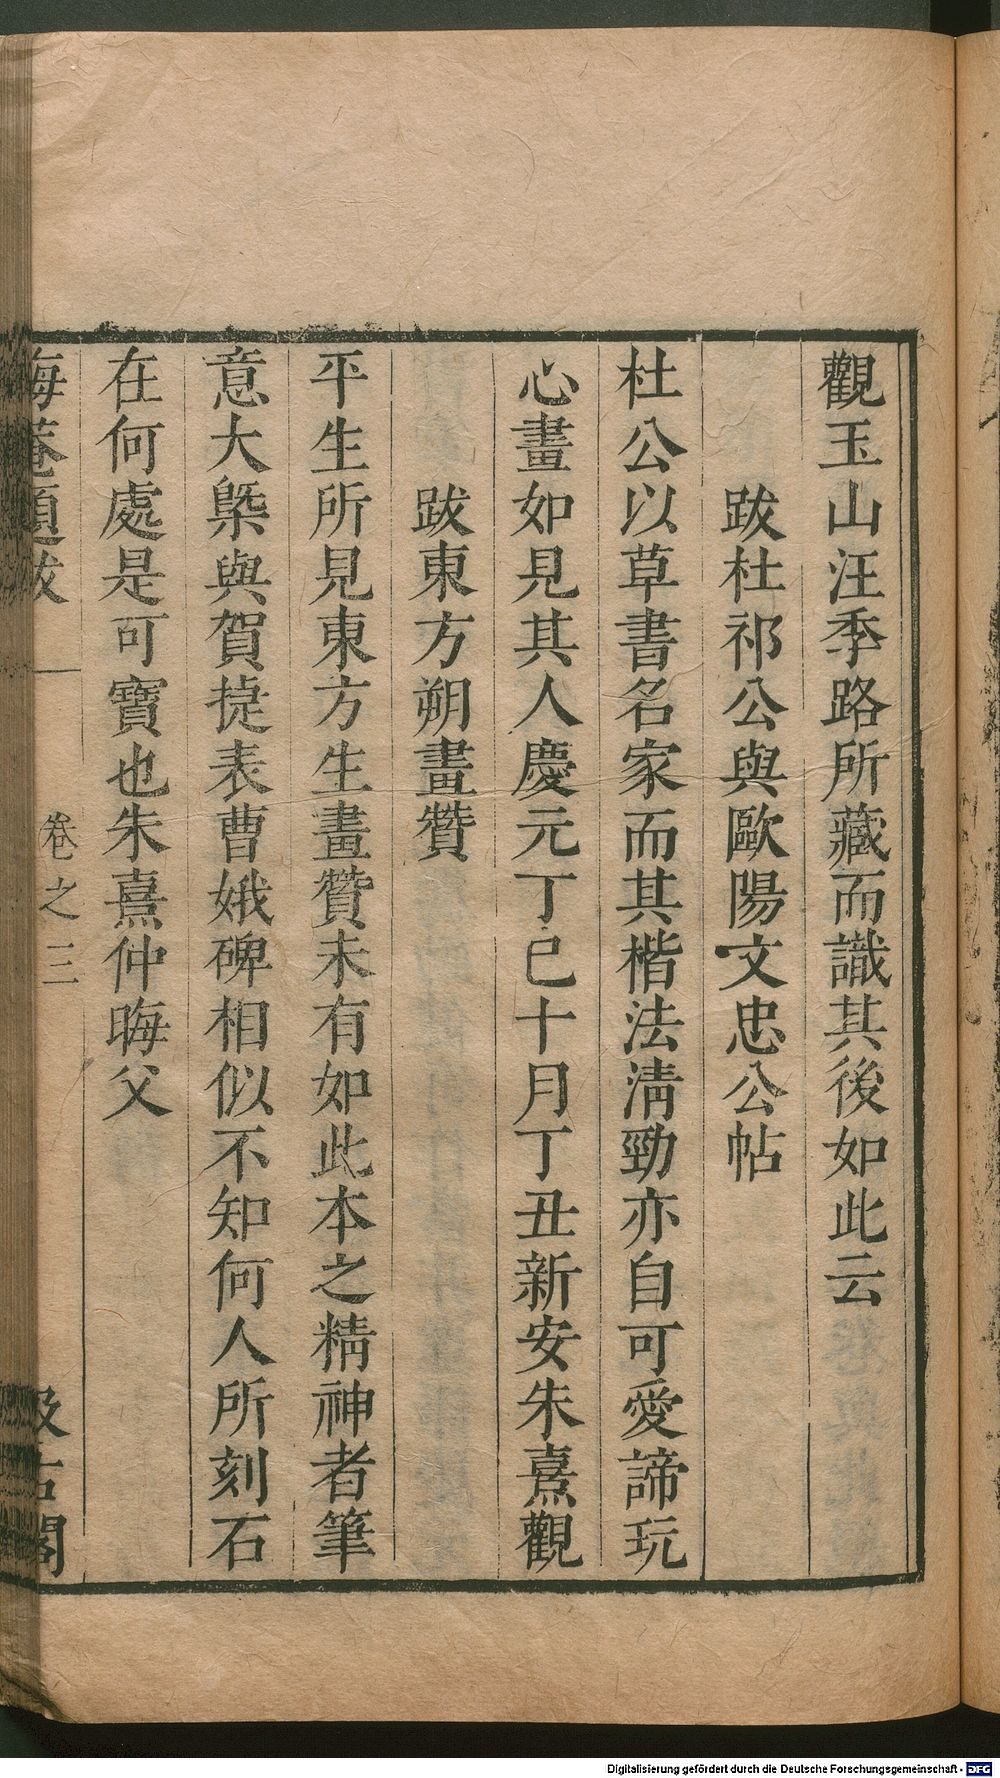 觀玉山汪季路所藏而識其後如此云
跋杜祁公與歐陽文忠公帖
杜公以草書名家而其楷法清勁亦自可愛諦玩
心畫如見其人慶元丁巳十月丁丑新安朱熹觀
跋東方朔畫贊
平生所見東方生畫贊未有如此本之精神者筆
意大槩與賀捷表曹娥碑相似不知何人所刻石
在何處是可寶也朱熹仲晦父
晦菴題跋 卷之三 汲古閣
Digitalisierung gefördert durch die Deutsche Forschungsgemeinschaft - DFG